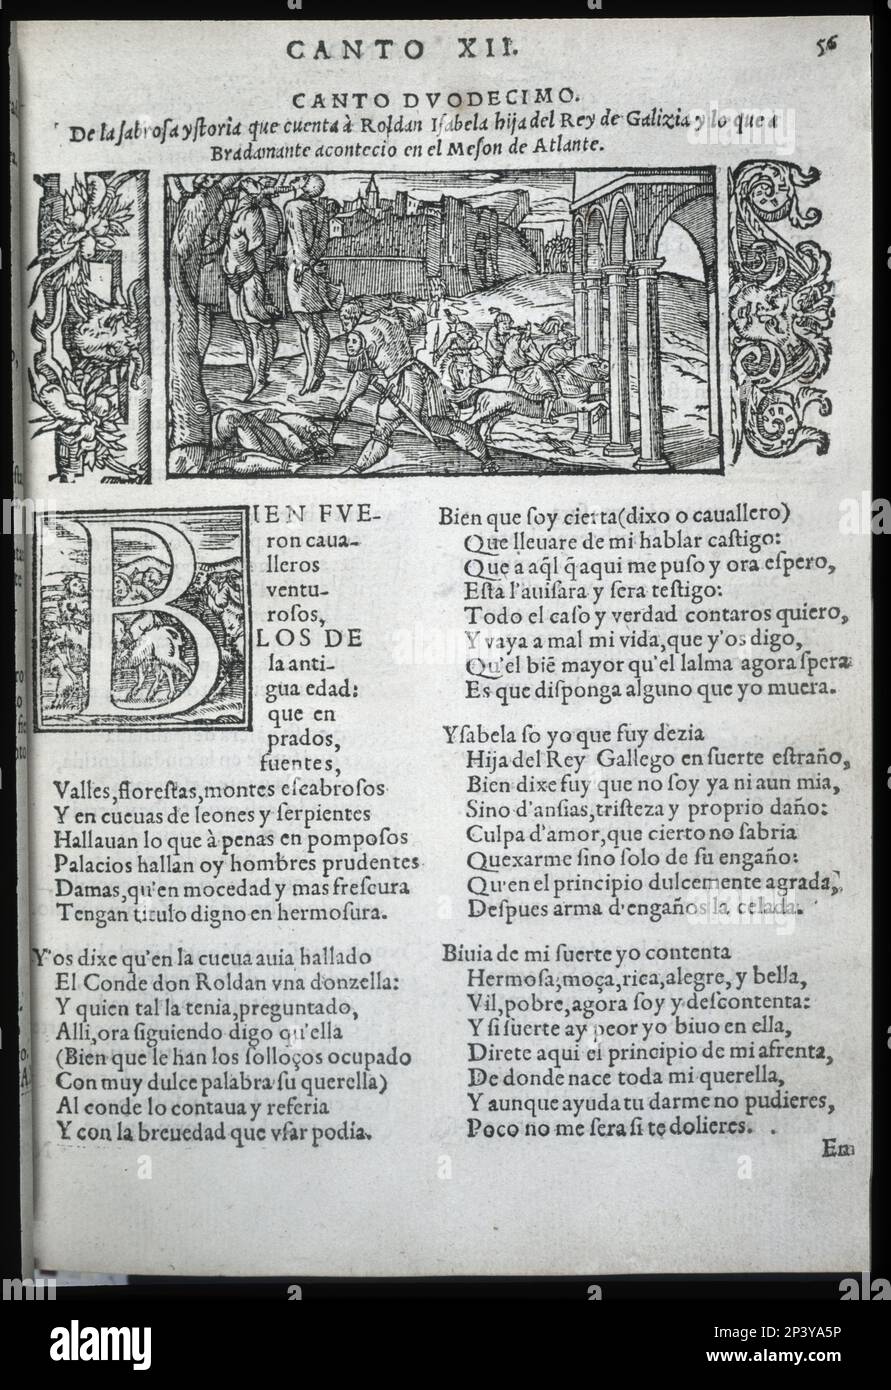 CANTO XII.
56
CANTO DVODECIMO.
De la sabrosa ystoria que cuenta à Roldan Isabela hija del Rey de Galizia y lo que a
Bradamante acontecio en el Meson de Atlante.
BIEN FVE-
ron caua-
lleros
ventu-
rosos,
LOS DE
la anti-
gua edad:
que en
prados,
fuentes,
Valles, florestas, montes escabrosos
Y en cueuas de leones y serpientes
Hallauan lo que à penas en pomposos
Palacios hallan oy hombres prudentes
Damas, qu'en mocedad y mas frescura
Tengan titulo digno en hermosura.
Y'os dixe qu'en la cueua auia hallado
El Conde don Roldan vna donzella:
Y quien tal la tenia, preguntado,
Alli, ora siguiendo digo qu'ella
(Bien que le han los solloços ocupado
Con muy dulce palabra su querella)
Al conde lo contaua y referia
Y con la breuedad que vsar podia.
Bien que soy cierta (dixo o cauallero)
Que lleuare de mi hablar castigo:
Que a aq̃l q̃ aqui me puso y ora espero,
Esta l'auisara y sera testigo:
Todo el caso y verdad contaros quiero,
Y vaya a mal mi vida, que y'os digo,
Qu'el biẽ mayor qu'el lalma agora spera
Es que disponga alguno que yo muera.
Ysabela so yo que fuy dezia
Hija del Rey Gallego en suerte estraño,
Bien dixe fuy que no soy ya ni aun mia,
Sino d'ansias, tristeza y proprio daño:
Culpa d'amor, que cierto no sabria
Quexarme sino solo de su engaño:
Qu'en el principio dulcemente agrada,
Despues arma d'engaños la celada.
Biuia de mi suerte yo contenta
Hermosa, moça, rica, alegre, y bella,
Vil, pobre, agora soy y descontenta:
Y si suerte ay peor yo biuo en ella,
Direte aqui el principio de mi afrenta,
De donde nace toda mi querella,
Y aunque ayuda tu darme no pudieres,
Poco no me sera si te dolieres.
Em
alamy
Image ID: 2P3YA5P
www.alamy.com